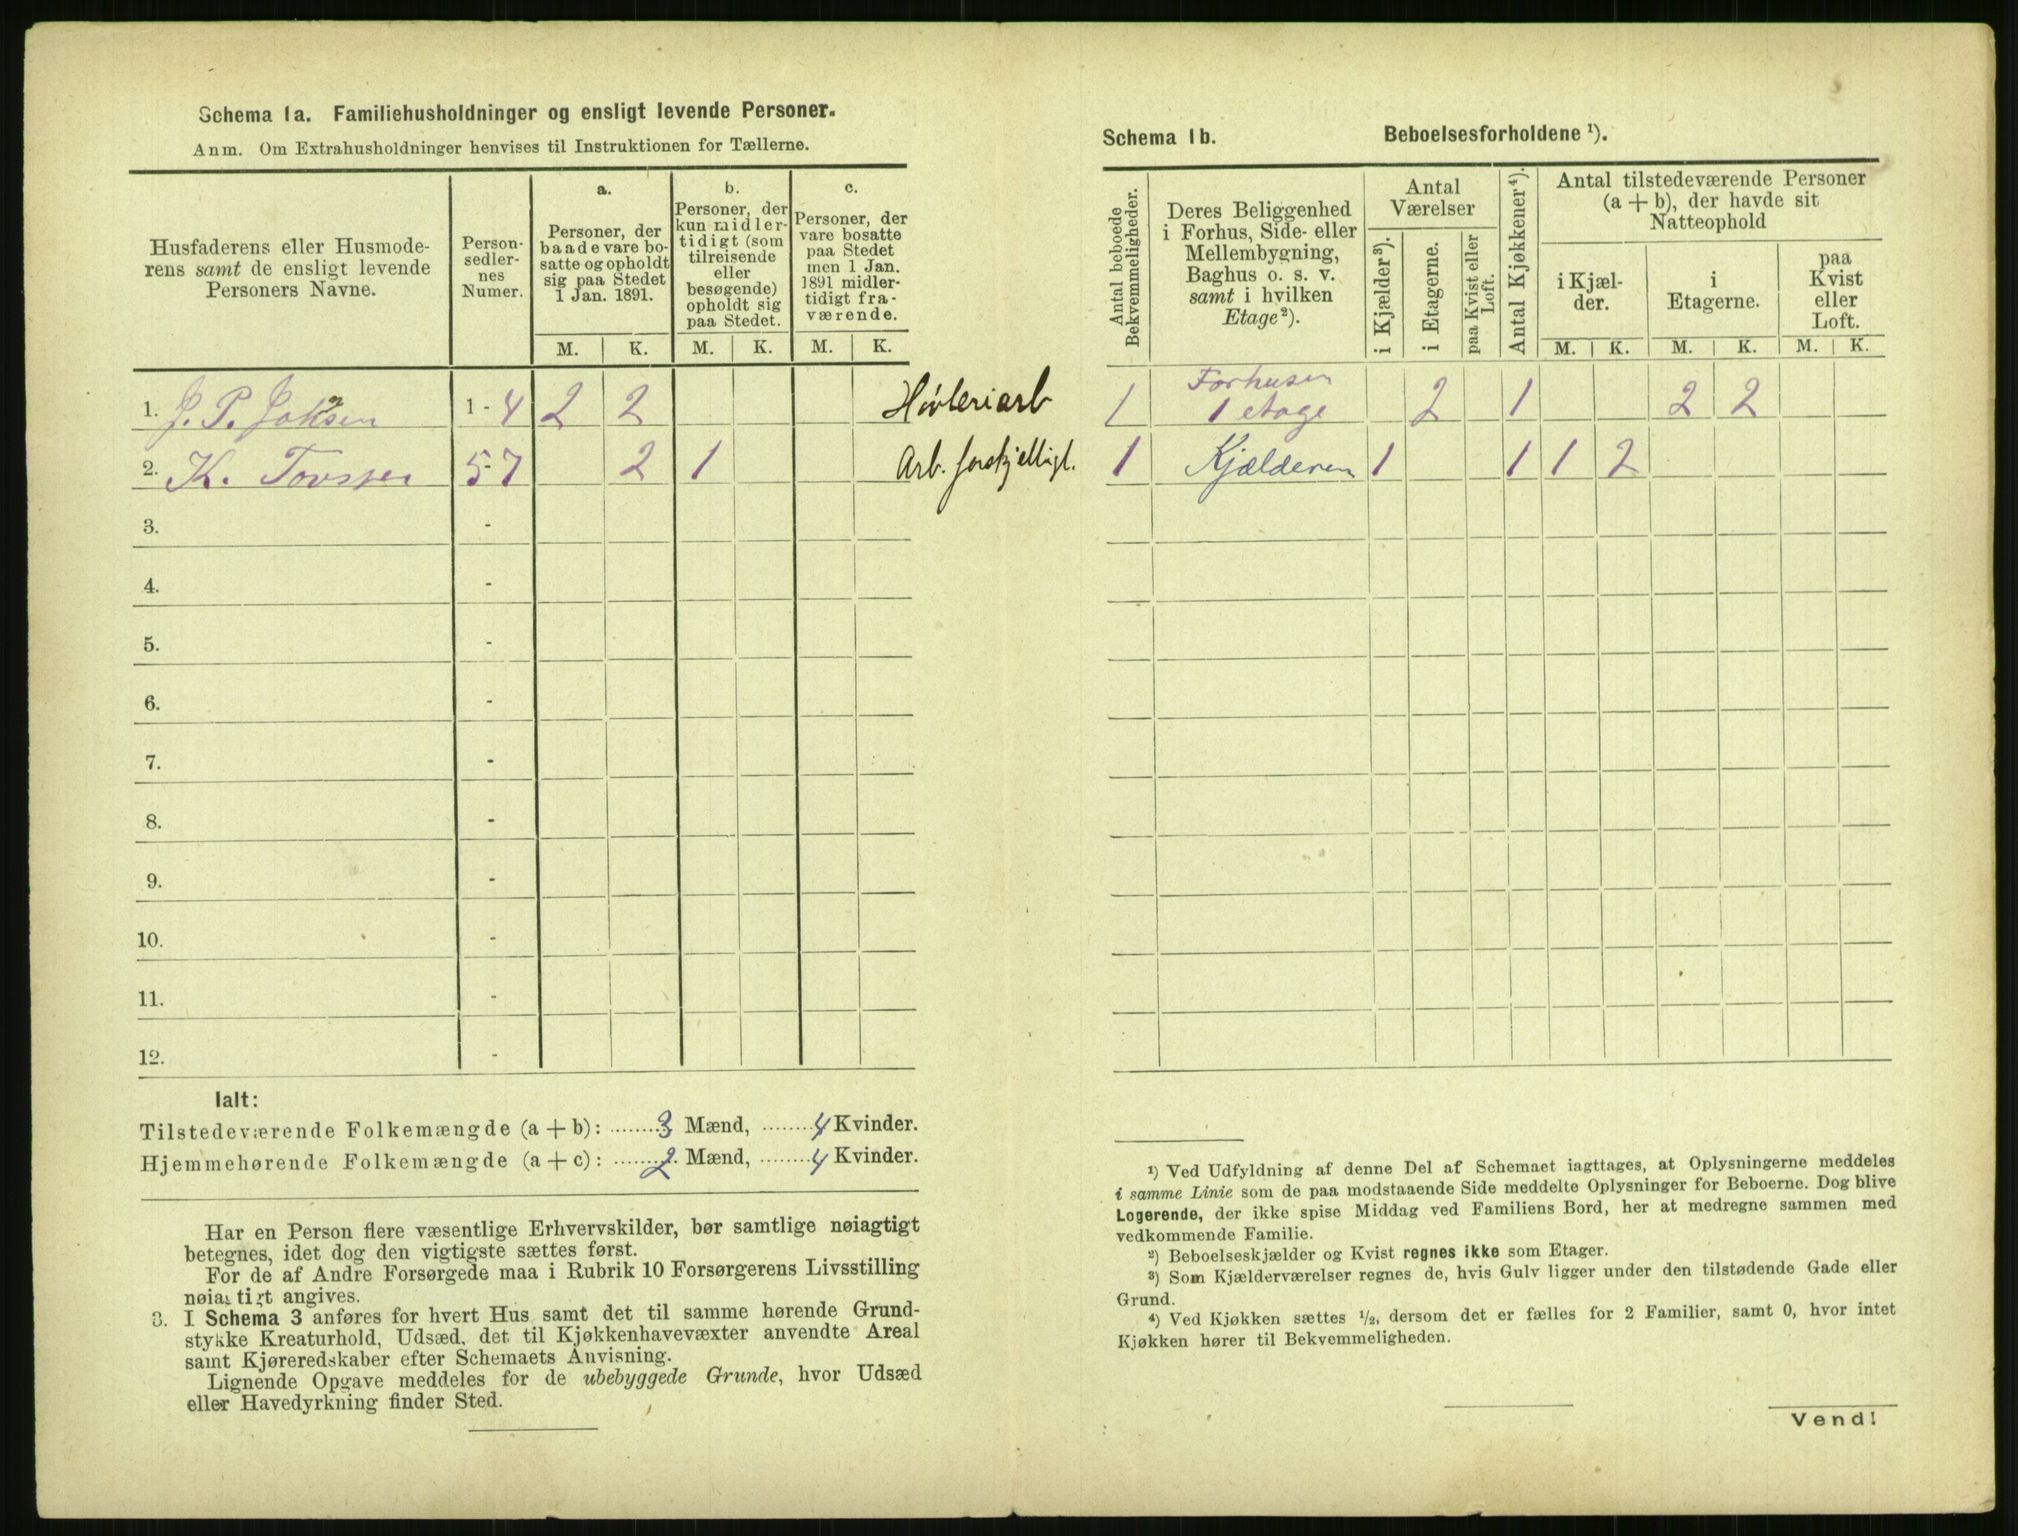 Schema 1a. Familiehusholdninger og ensligt levende Personer.
Anm. Om Extrahusholdninger henvises til Instruktionen for Tællerne.
Husfaderens eller Husmode-
rens samt de ensligt levende
Personers Navne.
Person-
sedler-
nes
Numer.
a.
Personer, der
baade vare bo-
satte og opholdt
sig paa Stedet
1 Jan. 1891.
b.
Personer, der
kun midler-
tidigt (som
tilreisende
eller
besøgende)
opholdt sig
paa Stedet.
c.
Personer, der
vare bosatte
paa Stedet
men 1 Jan.
1891 midler-
tidigt fra-
værende.
M. K. M. K. M. K.
1. J. P. 1 - 4 2 2 Høvleriarb
2. K. 5-7 2 1 Arb. forskjelligt.
3. -
4. -
5. -
6. -
7. -
8. -
9. -
10. -
11. -
12. -
Ialt:
Tilstedeværende Folkemængde (a + b): 3 Mænd, 4 Kvinder.
Hjemmehørende Folkemængde (a + c): 2 Mænd, 4 Kvinder.
Har en Person flere væsentlige Erhvervskilder, bør samtlige nøiagtigt
betegnes, idet dog den vigtigste sættes først.
For de af Andre Forsørgede maa i Rubrik 10 Forsørgerens Livsstilling
nøiagtigt angives.
3. I Schema 3 anføres for hvert Hus samt det til samme hørende Grund-
stykke Kreaturhold, Udsæd, det til Kjøkkenhavevæxter anvendte Areal
samt Kjøreredskaber efter Schemaets Anvisning.
Lignende Opgave meddeles for de ubebyggede Grunde, hvor Udsæd
eller Havedyrkning finder Sted.
Schema 1b. Beboelsesforholdene ¹).
Antal beboede
Bekvemmeligheder.
Deres Beliggenhed
i Forhus, Side- eller
Mellembygning,
Baghus o. s. v.
samt i hvilken
Etage²).
Antal
Værelser
i Kjælder³).
i Etagerne.
paa Kvist eller
Loft.
Antal Kjøkkener⁴).
Antal tilstedeværende Personer
(a + b), der havde sit
Natteophold
i Kjæl-
der.
i
Etagerne.
paa
Kvist
eller
Loft.
M. K. M. K. M. K.
1 Forhusen
1 etage 2 1 2 2
1 Kjælderen 1 1 1 2
¹) Ved Udfyldning af denne Del af Schemaet iagttages, at Oplysningerne meddeles
i samme Linie som de paa modstaaende Side meddelte Oplysninger for Beboerne. Dog blive
Logerende, der ikke spise Middag ved Familiens Bord, her at medregne sammen med
vedkommende Familie.
²) Beboelseskjælder og Kvist regnes ikke som Etager.
³) Som Kjælderværelser regnes de, hvis Gulv ligger under den tilstødende Gade eller
Grund.
⁴) Ved Kjøkken sættes ½, dersom det er fælles for 2 Familier, samt 0, hvor intet
Kjøkken hører til Bekvemmeligheden.
Vend!